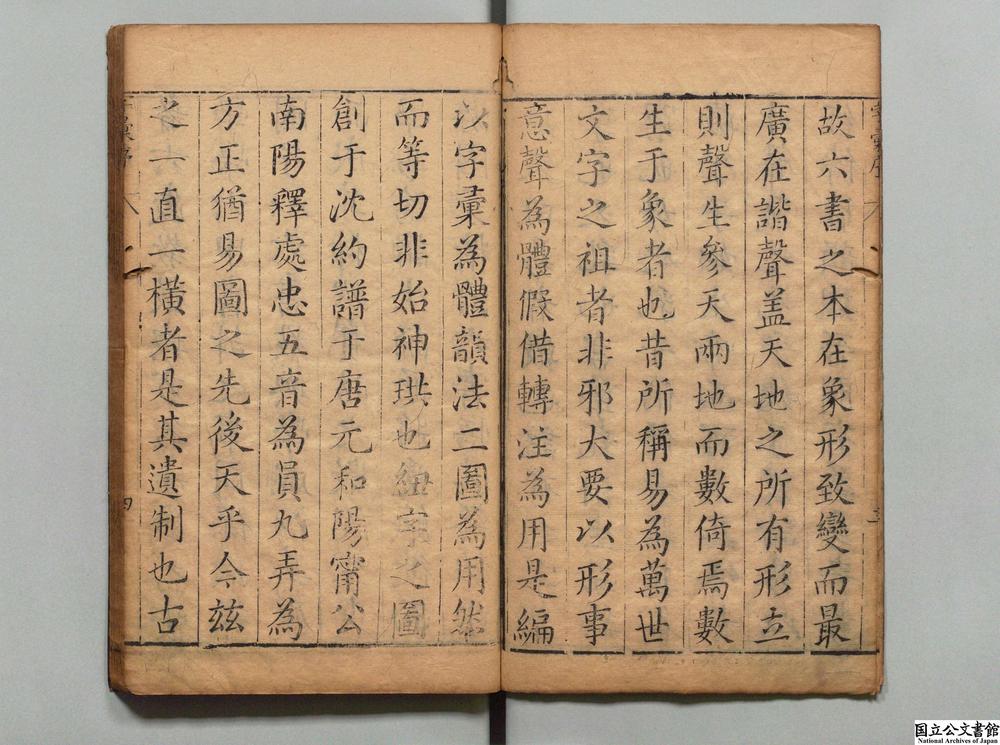 故六書之本在象形致變而最
廣在諧聲盖天地之所有形立
則聲生參天兩地而數倚焉數
生于象者也昔所稱易為萬世
文字之祖者非邪大要以形事
意聲為體假借轉注為用是編
以字彙為體韻法二圖為用然
而等切非始神珙也紐字之圖
創于沈約譜于唐元和陽甯公
南陽釋處忠五音為員九弄為
方正猶易圖之先後天乎今兹
之一直一橫者是其遺制也古
四
国立公文書館
National Archives of Japan